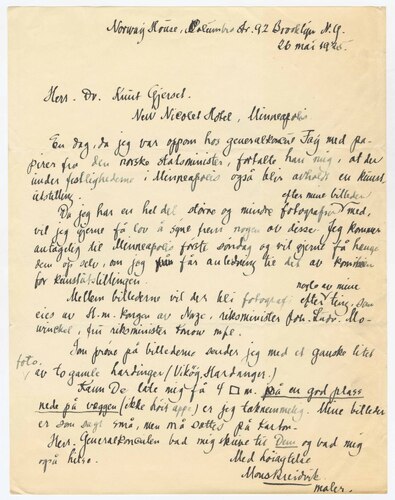 Norway House, Columbia St. 92 Brooklyn N.Y.
26 mai 1925.
Herr. Dr. Knut Gjerset.
New Nicolet Hotel, Minneapolis
En dag, da jeg var oppom hos generalkonsul Fay med pa-
pirer fra den norske statsminister, fortalte han mig, at der
under festlighederne i Minneapolis også blir avholdt en kunst
utstilling.
efter mine billeder
Da jeg har en hel del större og mindre fotografier med,
vil jeg gjerne få lov å syne frem nogen av desse. Jeg kommer
antagelig til Minneapolis förste söndag og vil gjerne få henge
dem op selv, om jeg får anledning til det av komiteen
for kunstutstillingen.
nogle av mine
Mellem billederne vil der bli fotografi efter ting, som
eies av H.M. Kongen av Norge, riksminister Joh. Ludv. Mo-
winckel, fru riksminister
Som pröve på billederne sender jeg med et ganske litet
foto. av to gamle hardinger (Vikög, Hardanger.)
Kann De late mig få 4 □ m. på en god plass
nede på væggen (ikke höit oppe) er jeg taknemmelig. Mine billeder
er som sagt små, men må sættes på karton.
Herr. Generalkonsulen bad mig skrive til Dem og bad mig
også hilse.
Med höiagtelse
Mons Breidvik
maler.